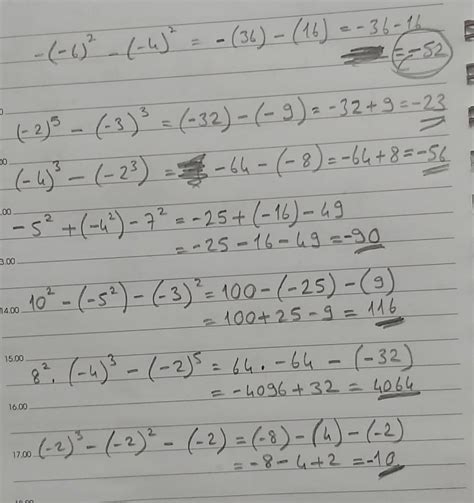 -(-6)² - (-4)² = -(36) - (16) = -36-16
= -52
(-2)⁵ - (-3)³ = (-32) - (-9) = -32+9 = -23
(-4)³ - (-2³) = -64 - (-8) = -64+8 = -56
-5² + (-4²) - 7² = -25 + (-16) - 49
= -25 - 16 - 49 = -90
13.00
10² - (-5²) - (-3)² = 100 - (-25) - (9)
14.00
= 100 + 25 - 9 = 116
15.00
8² . (-4)³ - (-2)⁵ = 64 . -64 - (-32)
= -4096 + 32 = 4064
16.00
17.00 (-2)³ - (-2)² - (-2) = (-8) - (4) - (-2)
= -8 - 4 + 2 = -10